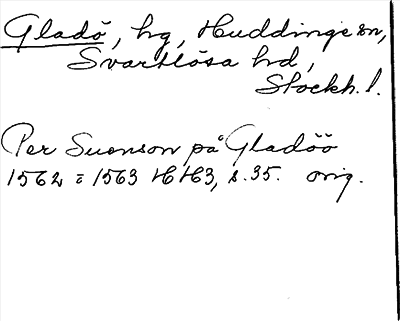 Gladö, hg, Huddinge sn,
Svartlösa hd,
Stockh. l.
Per Suenson på Gladöö
1562 = 1563 HH3, s. 35. orig.